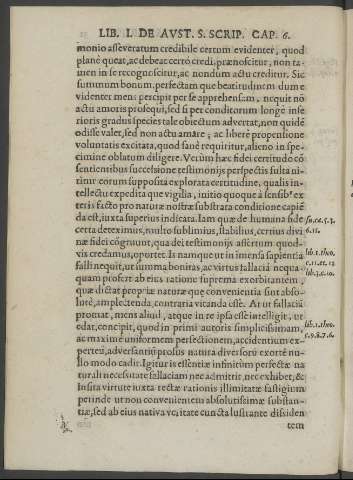 LIB. I. DE AVST. S. SCRIP. CAP. 6.
monio asseveratum credibile certum evidenter, quod
planè queat, ac debeat certò credi, prænoscitur, non ta-
men in se recognoscitur, ac nondum actu creditur. Sic
summum bonum, perfectam que beatitudinem dum e
videnter mens percipit per se apprehensam, nequit nõ
actu amoris prosequi, sed si per conditorum longè infe
rioris gradus species tale obiectum advertat, non quidẽ
odisse valet, sed non actu amare; ac liberè propensione
voluntatis excitata, quod sanè requiritur, alieno in spe-
cimine oblatum diligere. Verùm hæc fidei certitudo cõ
sentientibus successione testimonijs perspectis fulta ni-
titur eorum supposita explorata certitudine, qualis in-
tellectu expedita que vigilia, initio quoque à sensib⁹ ex
teris facto pro naturæ nostræ substrata conditione capiẽ
da est, iuxta superius indicata. Iam quæ de humana fide
certa deteximus, multo sublimius, stabilius, certius divi
næ fidei cõgruunt, qua dei testimonijs assertum quod-
vis credamus, oportet. Is namque ut in imensa sapientia
falli nequit, ut summa bonitas, ac virtus fallacia nequa-
quam profert ab eius ratione suprema exorbitantem,
quæ dictat propriæ naturæ que convenientia sint absolu-
lutè, amplectenda, contraria vitanda esse. At ut fallacia
promat, mens aliud, atque in re ipsa esse intelligit, ut
edat, concipit, quod in primi autoris simplicissimam,
ac maximè uniformem perfectionem, accidentium ex-
pertem, adversantiũ prorsus natura diversorũ exortẽ nu-
llo modo cadit. Igitur is essentiæ infinitùm perfectæ na
turali necessitate fallaciam nec admittit, nec exhibet, &
Insita virtute iuxta rectæ rationis illimitatæ fastigium
perinde ut non convenientem absolutissimæ substan-
tiæ, sed ab eius nativa veritate cuncta lustrante dissiden
tem
su. ca. 5. 3.
6. 11.
lib. 1. theo.
c. 11. et. 12
lib. 3. c. 10.
lib. 1. theo.
c. 9. 8. 7. 6.